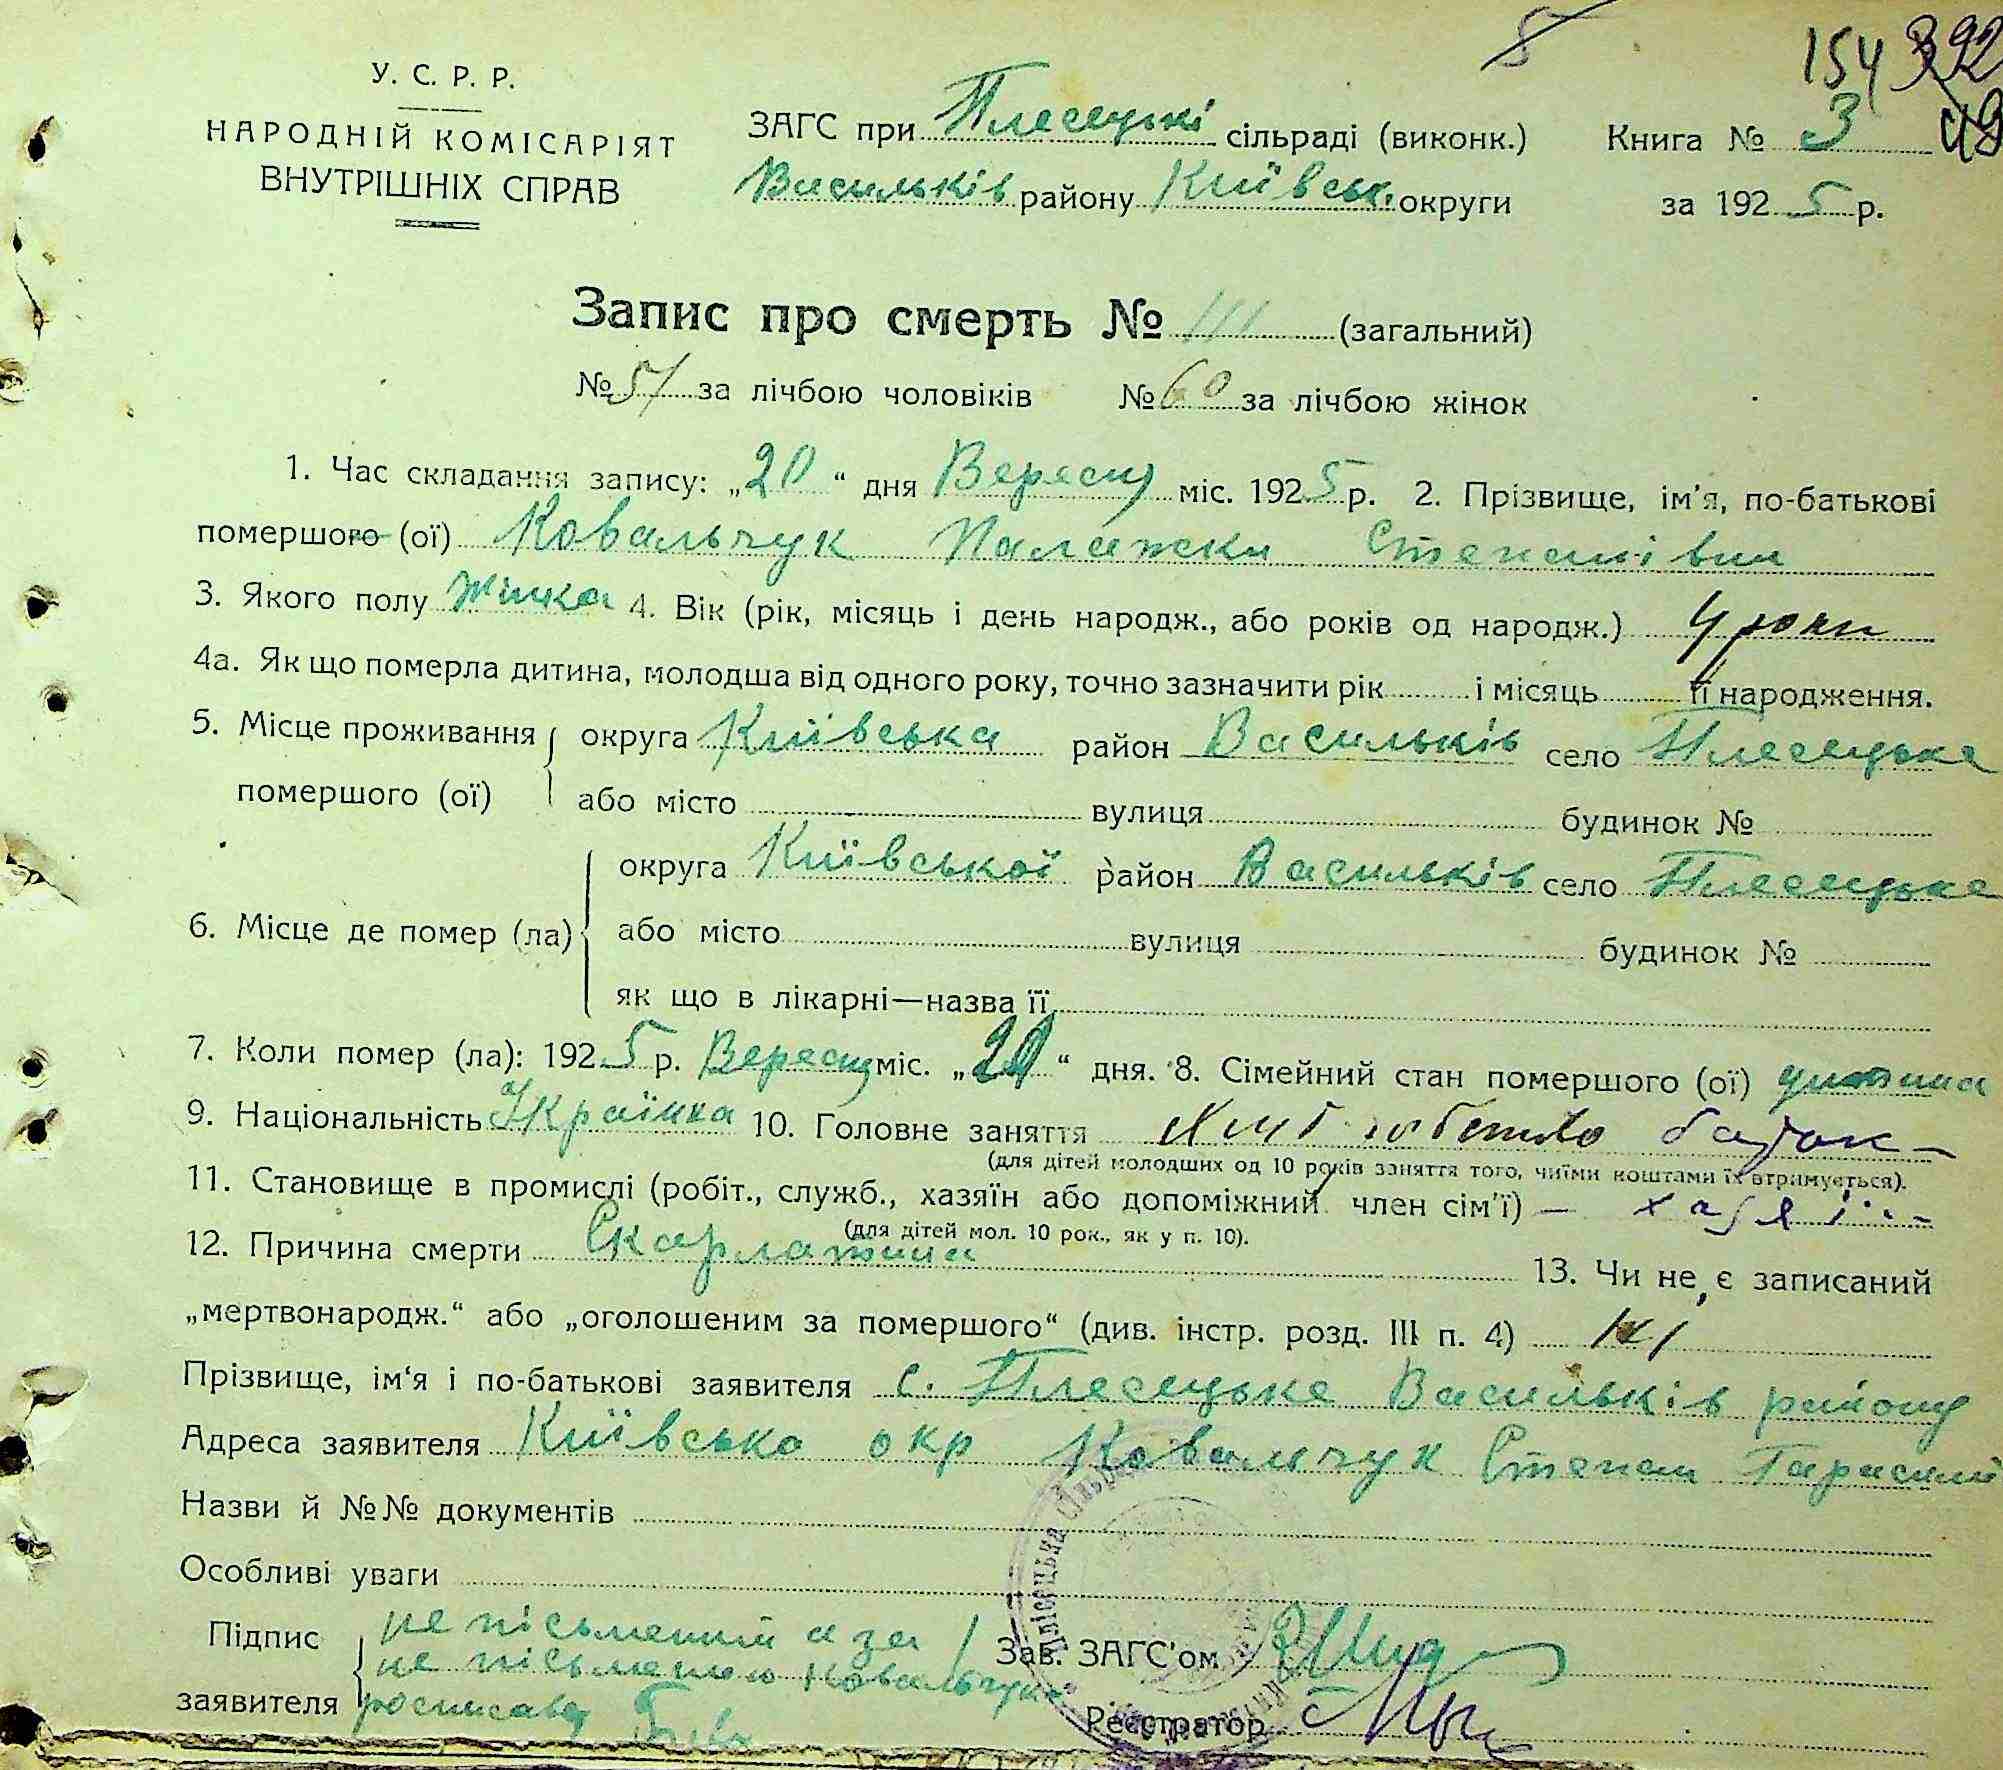 154 392
У. С. Р. Р.
НАРОДНІЙ КОМІСАРІЯТ
ВНУТРІШНІХ СПРАВ
ЗАГС при Плесецькі сільраді (виконк.) Книга № 3 49
Васильків району Київськ. округи за 1925 р.
Запис про смерть № 111 (загальний)
№ 51 за лічбою чоловіків № 60 за лічбою жінок
1. Час складання запису: „20“ дня Вересня міс. 1925 р. 2. Прізвище, ім'я, по-батькові
помершого (ої) Ковальчук Палажка Степанівна
3. Якого полу Жінка 4. Вік (рік, місяць і день народж., або років од народж.) 4 роки
4а. Як що померла дитина, молодша від одного року, точно зазначити рік і місяць її народження.
5. Місце проживання округа Київська район Васильків село Плесецьке
помершого (ої) або місто вулиця будинок №
округа Київської район Васильків село Плесецьке
6. Місце де помер (ла) або місто вулиця будинок №
як що в лікарні—назва її
7. Коли помер (ла): 1925 р. Вересня міс. „20“ дня. 8. Сімейний стан помершого (ої) дитина
9. Національність Українка 10. Головне заняття батьк
(для дітей молодших од 10 років заняття того, чиїми коштами їх втримується).
11. Становище в промислі (робіт., служб., хазяїн або допоміжний член сім'ї) — хазяїн
(для дітей мол. 10 рок., як у п. 10).
12. Причина смерти Скарлатина 13. Чи не є записаний
„мертвонародж.“ або „оголошеним за помершого“ (див. інстр. розд. III п. 4) Ні
Прізвище, ім'я і по-батькові заявителя с. Плесецьке Васильків району
Адреса заявителя Київсько окр Ковальчук Степан
Назви й №№ документів
Особливі уваги
Підпис не пісьмений а за
не пісьменого Ковальчука
заявителя росписавц
Зав. ЗАГС'ом
Реєстратор